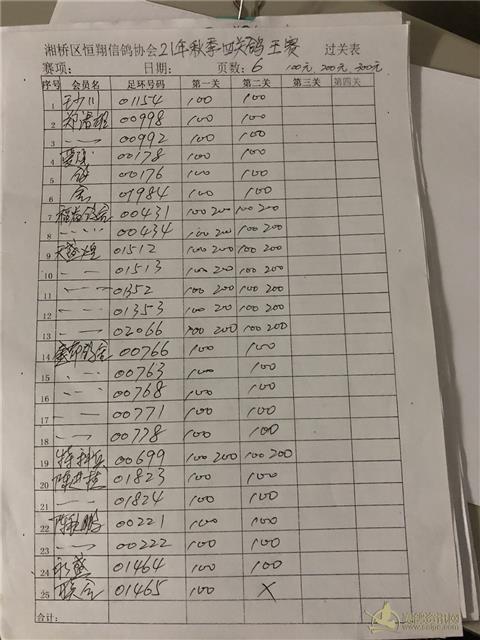 湘桥区恒翔信鸽协会21年秋季四关鸽王赛 过关表
赛项: 日期: 页数: 6 100元 200元 300元
序号 会员名 足环号码 第一关 第二关 第三关 第四关
1 01154 100 100
2 00998 100 100
3 〃 00992 100 100
4 00178 100 100
5 00176 100 100
6 01984 100 100
7 00431 100 200 100 200
8 00434 100 200 100 200
9 01512 100 200 100 200
10 01513 100 200 100 200
11 01352 100 200 100 200
12 01353 100 200 100 200
13 02066 100 200 100 200
14 00766 100 100
15 00763 100 100
16 00768 100 100
17 00771 100 100
18 00778 100 100
19 特种兵 00699 100 200 100 200
20 01823 100 100
21 01824 100 100
22 00221 100 100
23 00222 100 100
24 01464 100 100
25 01465 100 X
合计: